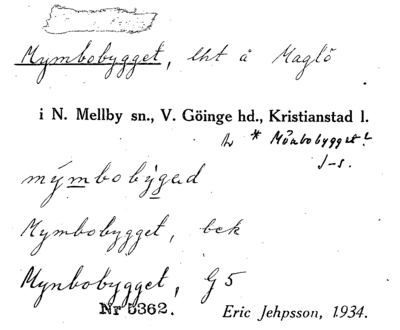 Mymbobygget, lht å Maglö
i N. Mellby sn., V. Göinge hd., Kristianstad l.
* Mönbobygget?
J-s.
mýmbobỳgəd
Mymbobygget, bek
Mynbobygget, G5
Nr 5362. Eric Jehpsson, 1934.